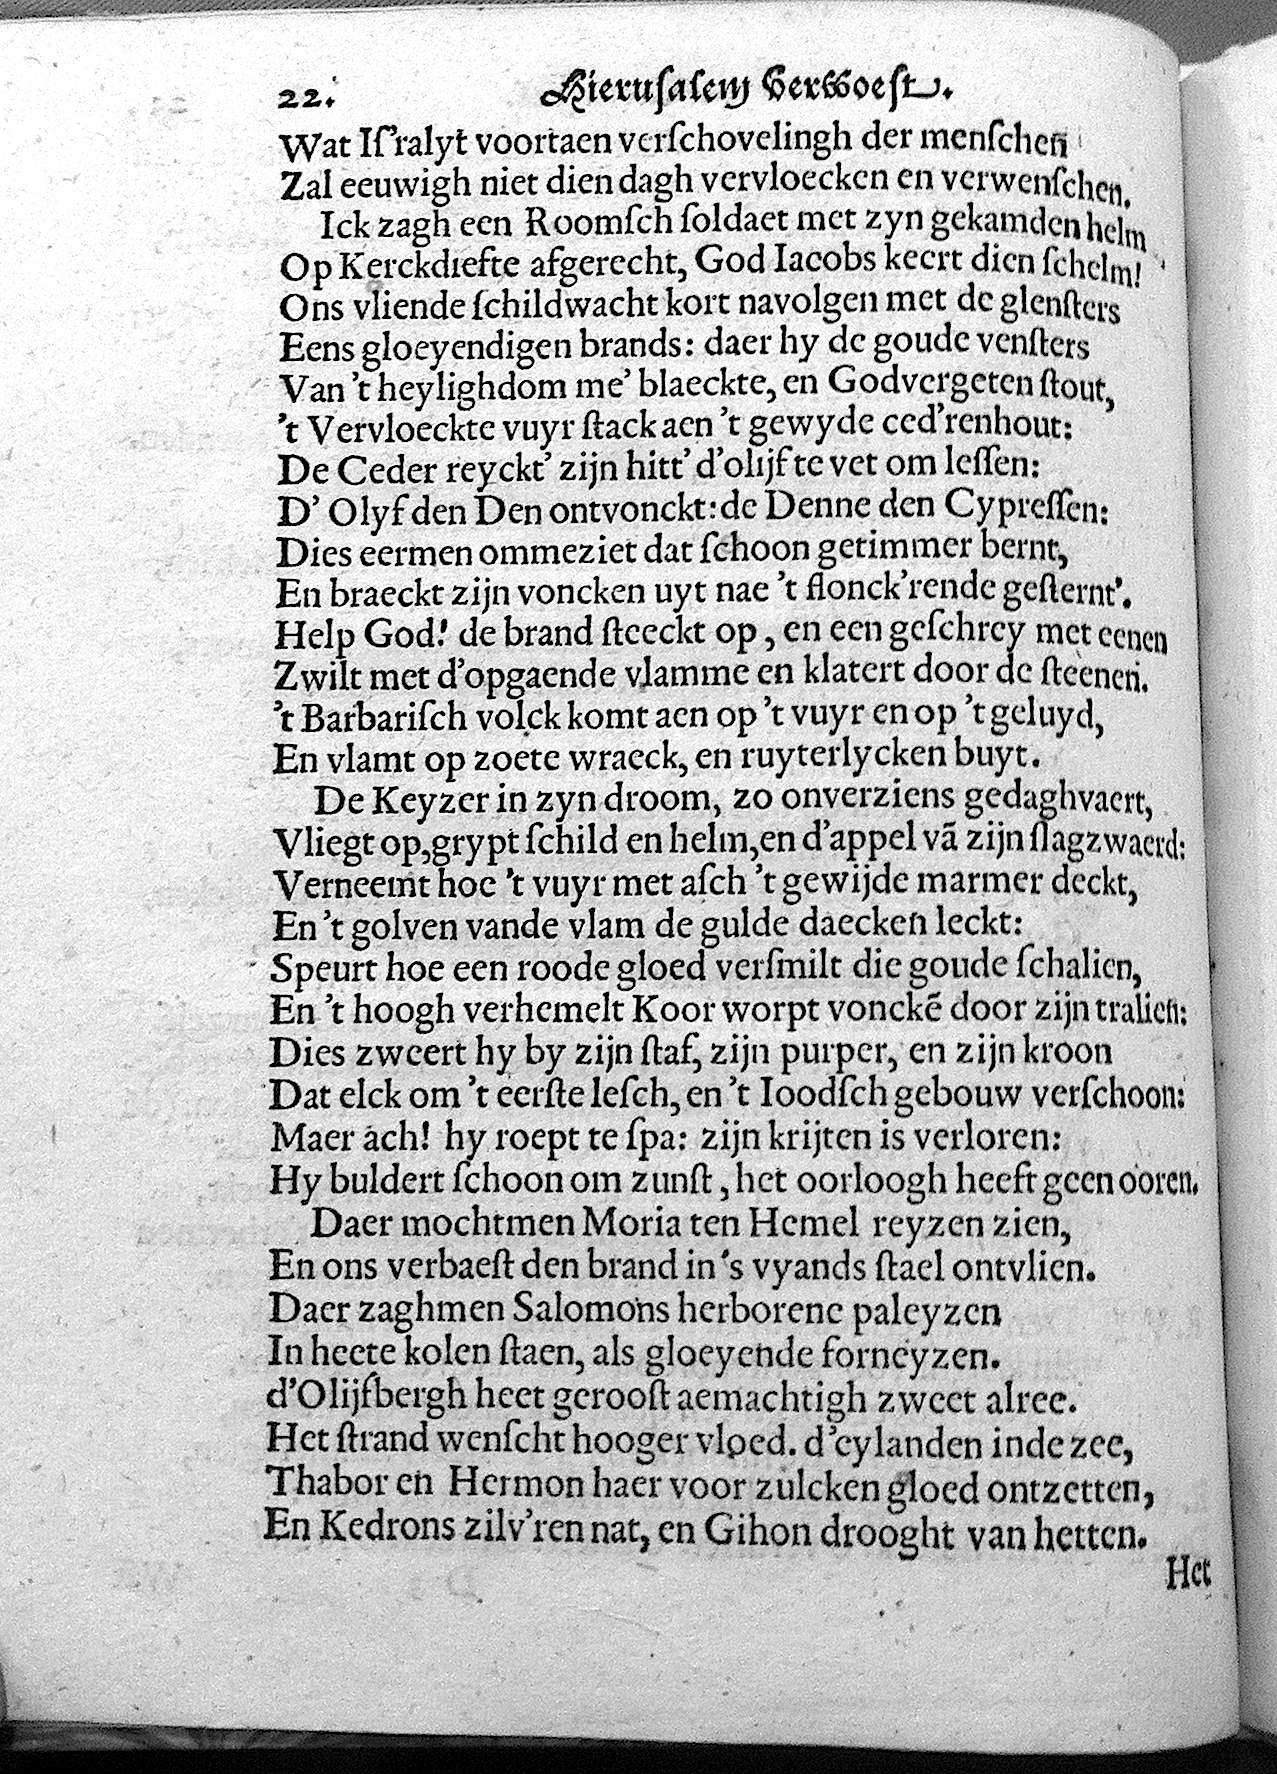 22. Hieruſalem Verwoeſt.
Wat Iſ'ralyt voortaen verſchovelingh der menſchen
Zal eeuwigh niet dien dagh vervloecken en verwenſchen.
Ick zagh een Roomſch ſoldaet met zyn gekamden helm
Op Kerckdiefte afgerecht, God Iacobs keert dien ſchelm!
Ons vliende ſchildwacht kort navolgen met de glenſters
Eens gloeyendigen brands: daer hy de goude venſters
Van 't heylighdom me' blaeckte, en Godvergeten ſtout,
't Vervloeckte vuyr ſtack aen 't gewyde ced'renhout:
De Ceder reyckt' zijn hitt' d'olijf te vet om leſſen:
D' Olyf den Den ontvonckt: de Denne den Cypreſſen:
Dies eermen ommeziet dat ſchoon getimmer bernt,
En braeckt zijn voncken uyt nae 't flonck'rende geſternt'.
Help God! de brand ſteeckt op, en een geſchrey met eenen
Zwilt met d'opgaende vlamme en klatert door de ſteenen.
't Barbariſch volck komt aen op 't vuyr en op 't geluyd,
En vlamt op zoete wraeck, en ruyterlycken buyt.
De Keyzer in zyn droom, zo onverziens gedaghvaert,
Vliegt op, grypt ſchild en helm, en d'appel vã zijn ſlagzwaerd:
Verneemt hoe 't vuyr met aſch 't gewijde marmer deckt,
En 't golven vande vlam de gulde daecken leckt:
Speurt hoe een roode gloed verſmilt die goude ſchalien,
En 't hoogh verhemelt Koor worpt vonckẽ door zijn tralien:
Dies zweert hy by zijn ſtaf, zijn purper, en zijn kroon
Dat elck om 't eerſte leſch, en 't Ioodſch gebouw verſchoon:
Maer ach! hy roept te ſpa: zijn krijten is verloren:
Hy buldert ſchoon om zunſt, het oorloogh heeft geen ooren.
Daer mochtmen Moria ten Hemel reyzen zien,
En ons verbaeſt den brand in 's vyands ſtael ontvlien.
Daer zaghmen Salomons herborene paleyzen
In heete kolen ſtaen, als gloeyende forneyzen.
d'Olijfbergh heet gerooſt aemachtigh zweet alree.
Het ſtrand wenſcht hooger vloed. d'eylanden inde zee,
Thabor en Hermon haer voor zulcken gloed ontzetten,
En Kedrons zilv'ren nat, en Gihon drooght van hetten.
Het